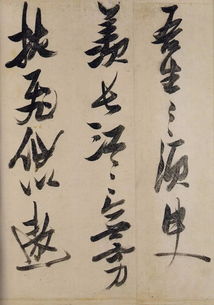 吾生之須臾
羨長江之無窮
挾飛仙以遨